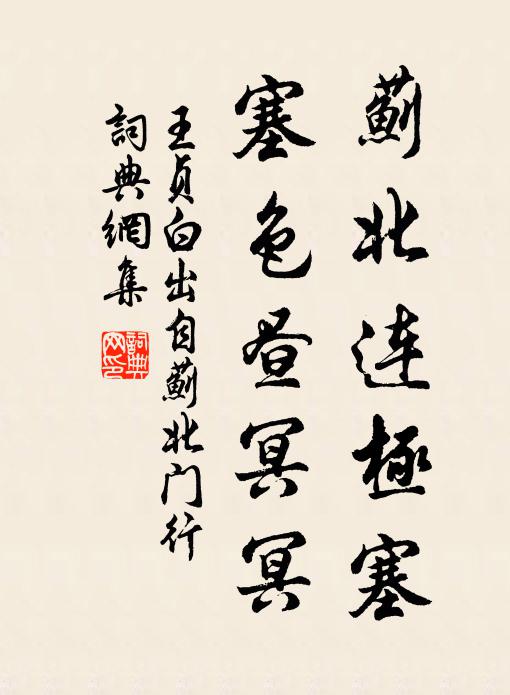 薊北连極塞
塞色昼冥冥
王貞白出自薊北门行
詞典網集
詞典网印